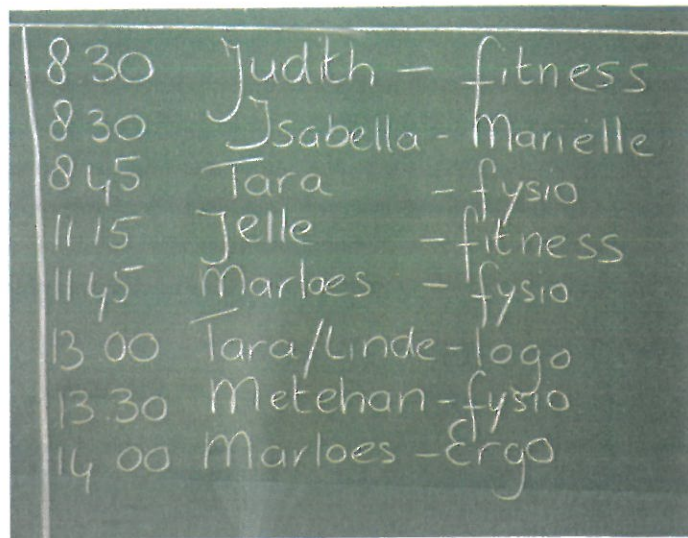 8 30 Judith - fitness
8 30 Isabella - Mariëlle
8 45 Tara - fysio
11 15 Jelle - fitness
11 45 Marloes - fysio
13 00 Tara/Linde - logo
13.30 Metehan - fysio
14 00 Marloes - Ergo